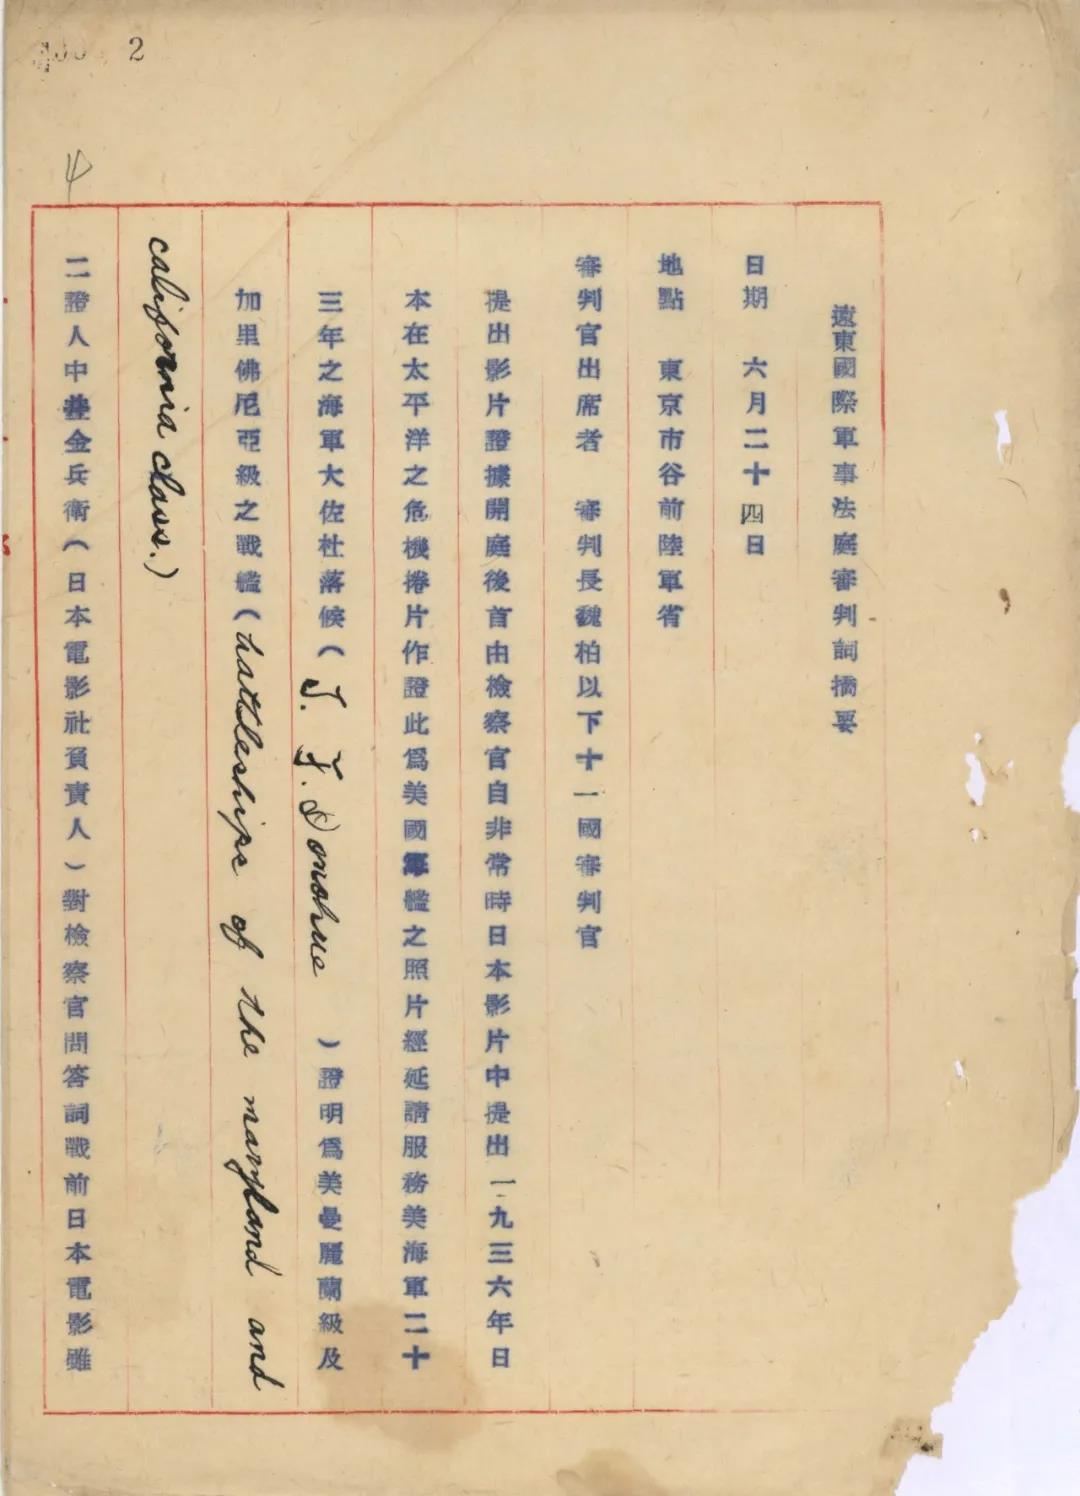 2
4
遠東國際軍事法庭審判詞摘要
日期 六月二十四日
地點 東京市谷前陸軍省
審判官出席者 審判長魏柏以下十一國審判官
提出影片證據開庭後首由檢察官自非常時日本影片中提出一九三六年日
本在太平洋之危機捲片作證此爲美國軍艦之照片經延請服務美海軍二十
三年之海軍大佐杜落候（J. J. Donohue ）證明爲美曼麗蘭級及
加里佛尼亞級之戰艦（battleships of the maryland and
california class.）
二證人中井金兵衛（日本電影社負責人）對檢察官問答詞戰前日本電影雖